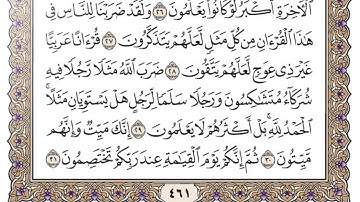 ٱلْأَخِرَةِ أَكْبَرُ لَوْ كَانُوا۟ يَعْلَمُونَ ٢٦ وَلَقَدْ ضَرَبْنَا لِلنَّاسِ فِى
هَٰذَا ٱلْقُرْءَانِ مِن كُلِّ مَثَلٍ لَّعَلَّهُمْ يَتَذَكَّرُونَ ٢٧ قُرْءَانًا عَرَبِيًّا
غَيْرَ ذِى عِوَجٍ لَّعَلَّهُمْ يَتَّقُونَ ٢٨ ضَرَبَ ٱللَّهُ مَثَلًا رَّجُلًا فِيهِ
شُرَكَآءُ مُتَشَٰكِسُونَ وَرَجُلًا سَلَمًا لِّرَجُلٍ هَلْ يَسْتَوِيَانِ مَثَلًا ۚ
ٱلْحَمْدُ لِلَّهِ ۚ بَلْ أَكْثَرُهُمْ لَا يَعْلَمُونَ ٢٩ إِنَّكَ مَيِّتٌ وَإِنَّهُم
مَّيِّتُونَ ٣٠ ثُمَّ إِنَّكُمْ يَوْمَ ٱلْقِيَٰمَةِ عِندَ رَبِّكُمْ تَخْتَصِمُونَ ٣١
٤٦١